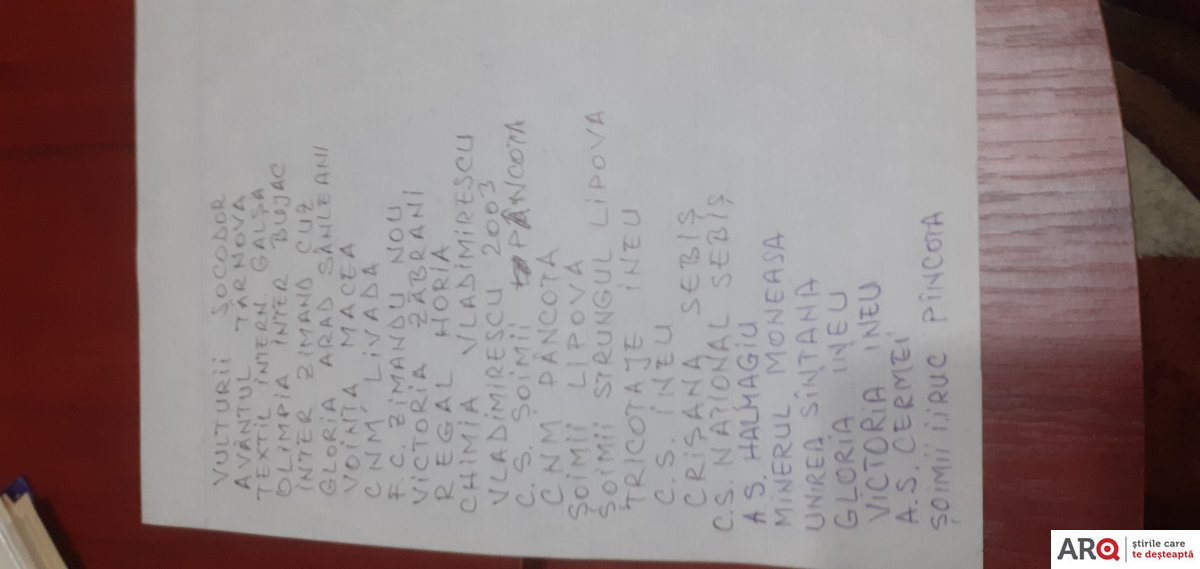 VULTURII SOCODOR
AVÂNTUL TÂRNOVA
TEXTIL INTERN. GALȘA
OLIMPIA INTER BUJAC
INTER ZIMAND CUZ
GLORIA ARAD SÂNLEANI
VOINTA MACEA
CNM LIVADA
F.C. ZIMANDU NOU
VICTORIA ZĂBRANI
REGAL HORIA
CHIMIA VLADIMIRESCU
VLADIMIRESCU 2003
C.S. ȘOIMII PÂNCOTA
CNM PÂNCOTA
ȘOIMII LIPOVA
ȘOIMII STRUNGUL LIPOVA
TRICOTAJE INEU
C.S. INEU
CRIȘANA SEBIȘ
C.S. NAȚIONAL SEBIȘ
A.S. HALMAGIU
MINERUL MONEASA
UNIREA SÎNTANA
GLORIA INEU
VICTORIA INEU
A.S. CERMEI
ȘOIMII I.IRUC PÎNCOTA
ARQ știrile care
te deșteaptă